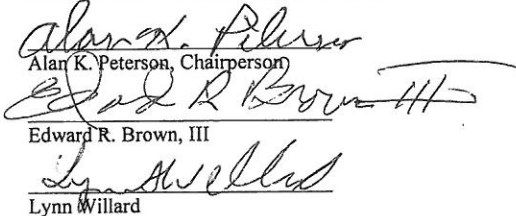 Alan K. Peterson
Alan K. Peterson, Chairperson
Edward R Brown III
Edward R. Brown, III
Lynn Willard
Lynn Willard